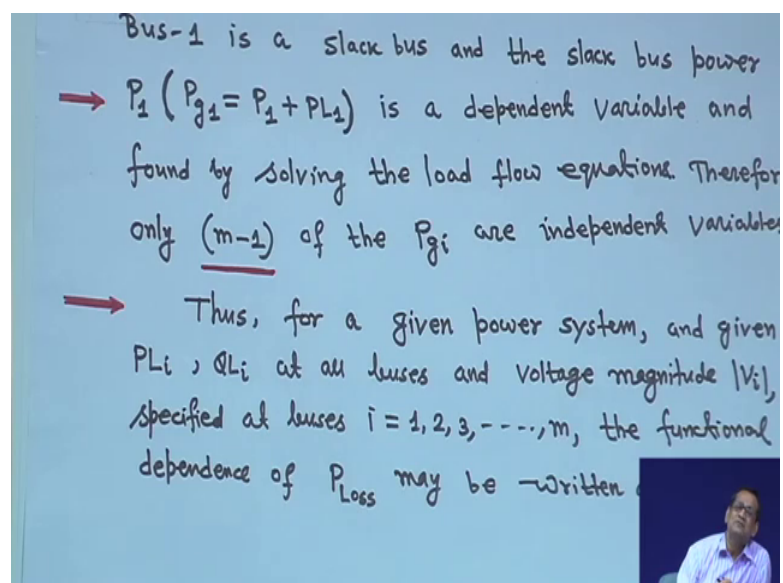 Bus-1 is a slack bus and the slack bus power
P₁ (Pg₁ = P₁ + PL₁) is a dependent variable and
found by solving the load flow equations. Therefor
only (m-1) of the Pgi are independent variables
Thus, for a given power system, and given
PLi, QLi at all buses and voltage magnitude |Vi|,
specified at buses i = 1, 2, 3, -----, m, the functional
dependence of PLoss may be written